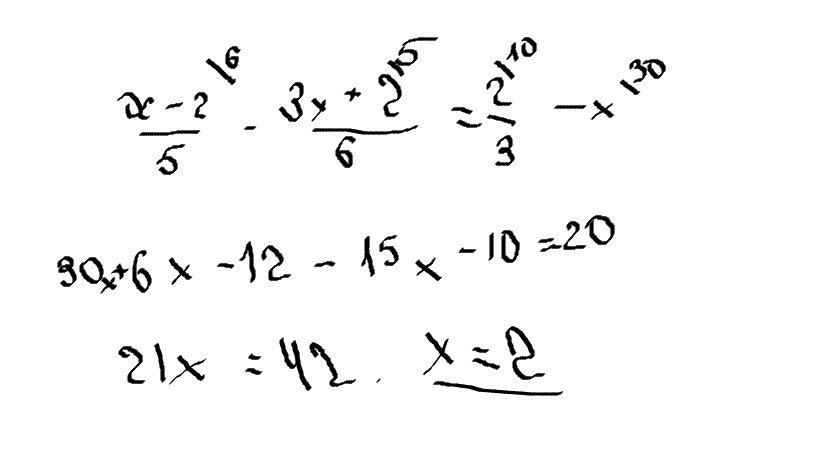 (x - 2)/5 |6 - (3x + 2)/6 |5 = 2/3 |10 - x |30
30x + 6x - 12 - 15x - 10 = 20
21x = 42. x = 2